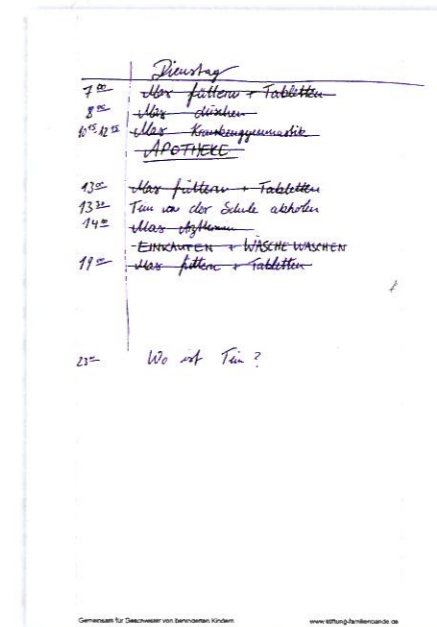 Dienstag
7⁰⁰ Max füttern + Tabletten
8⁰⁰ Max duschen
10⁴⁵-12¹⁵ Max Krankengymnastik
APOTHEKE
13⁰⁰ Max füttern + Tabletten
13³⁰ Tim von der Schule abholen
14⁰⁰ Max Arzttermin
EINKAUFEN + WÄSCHE WASCHEN
19⁰⁰ Max füttern + Tabletten
23⁰⁰ Wo ist Tim?
Gemeinsam für Geschwister von behinderten Kindern
www.stiftung-familienbande.de